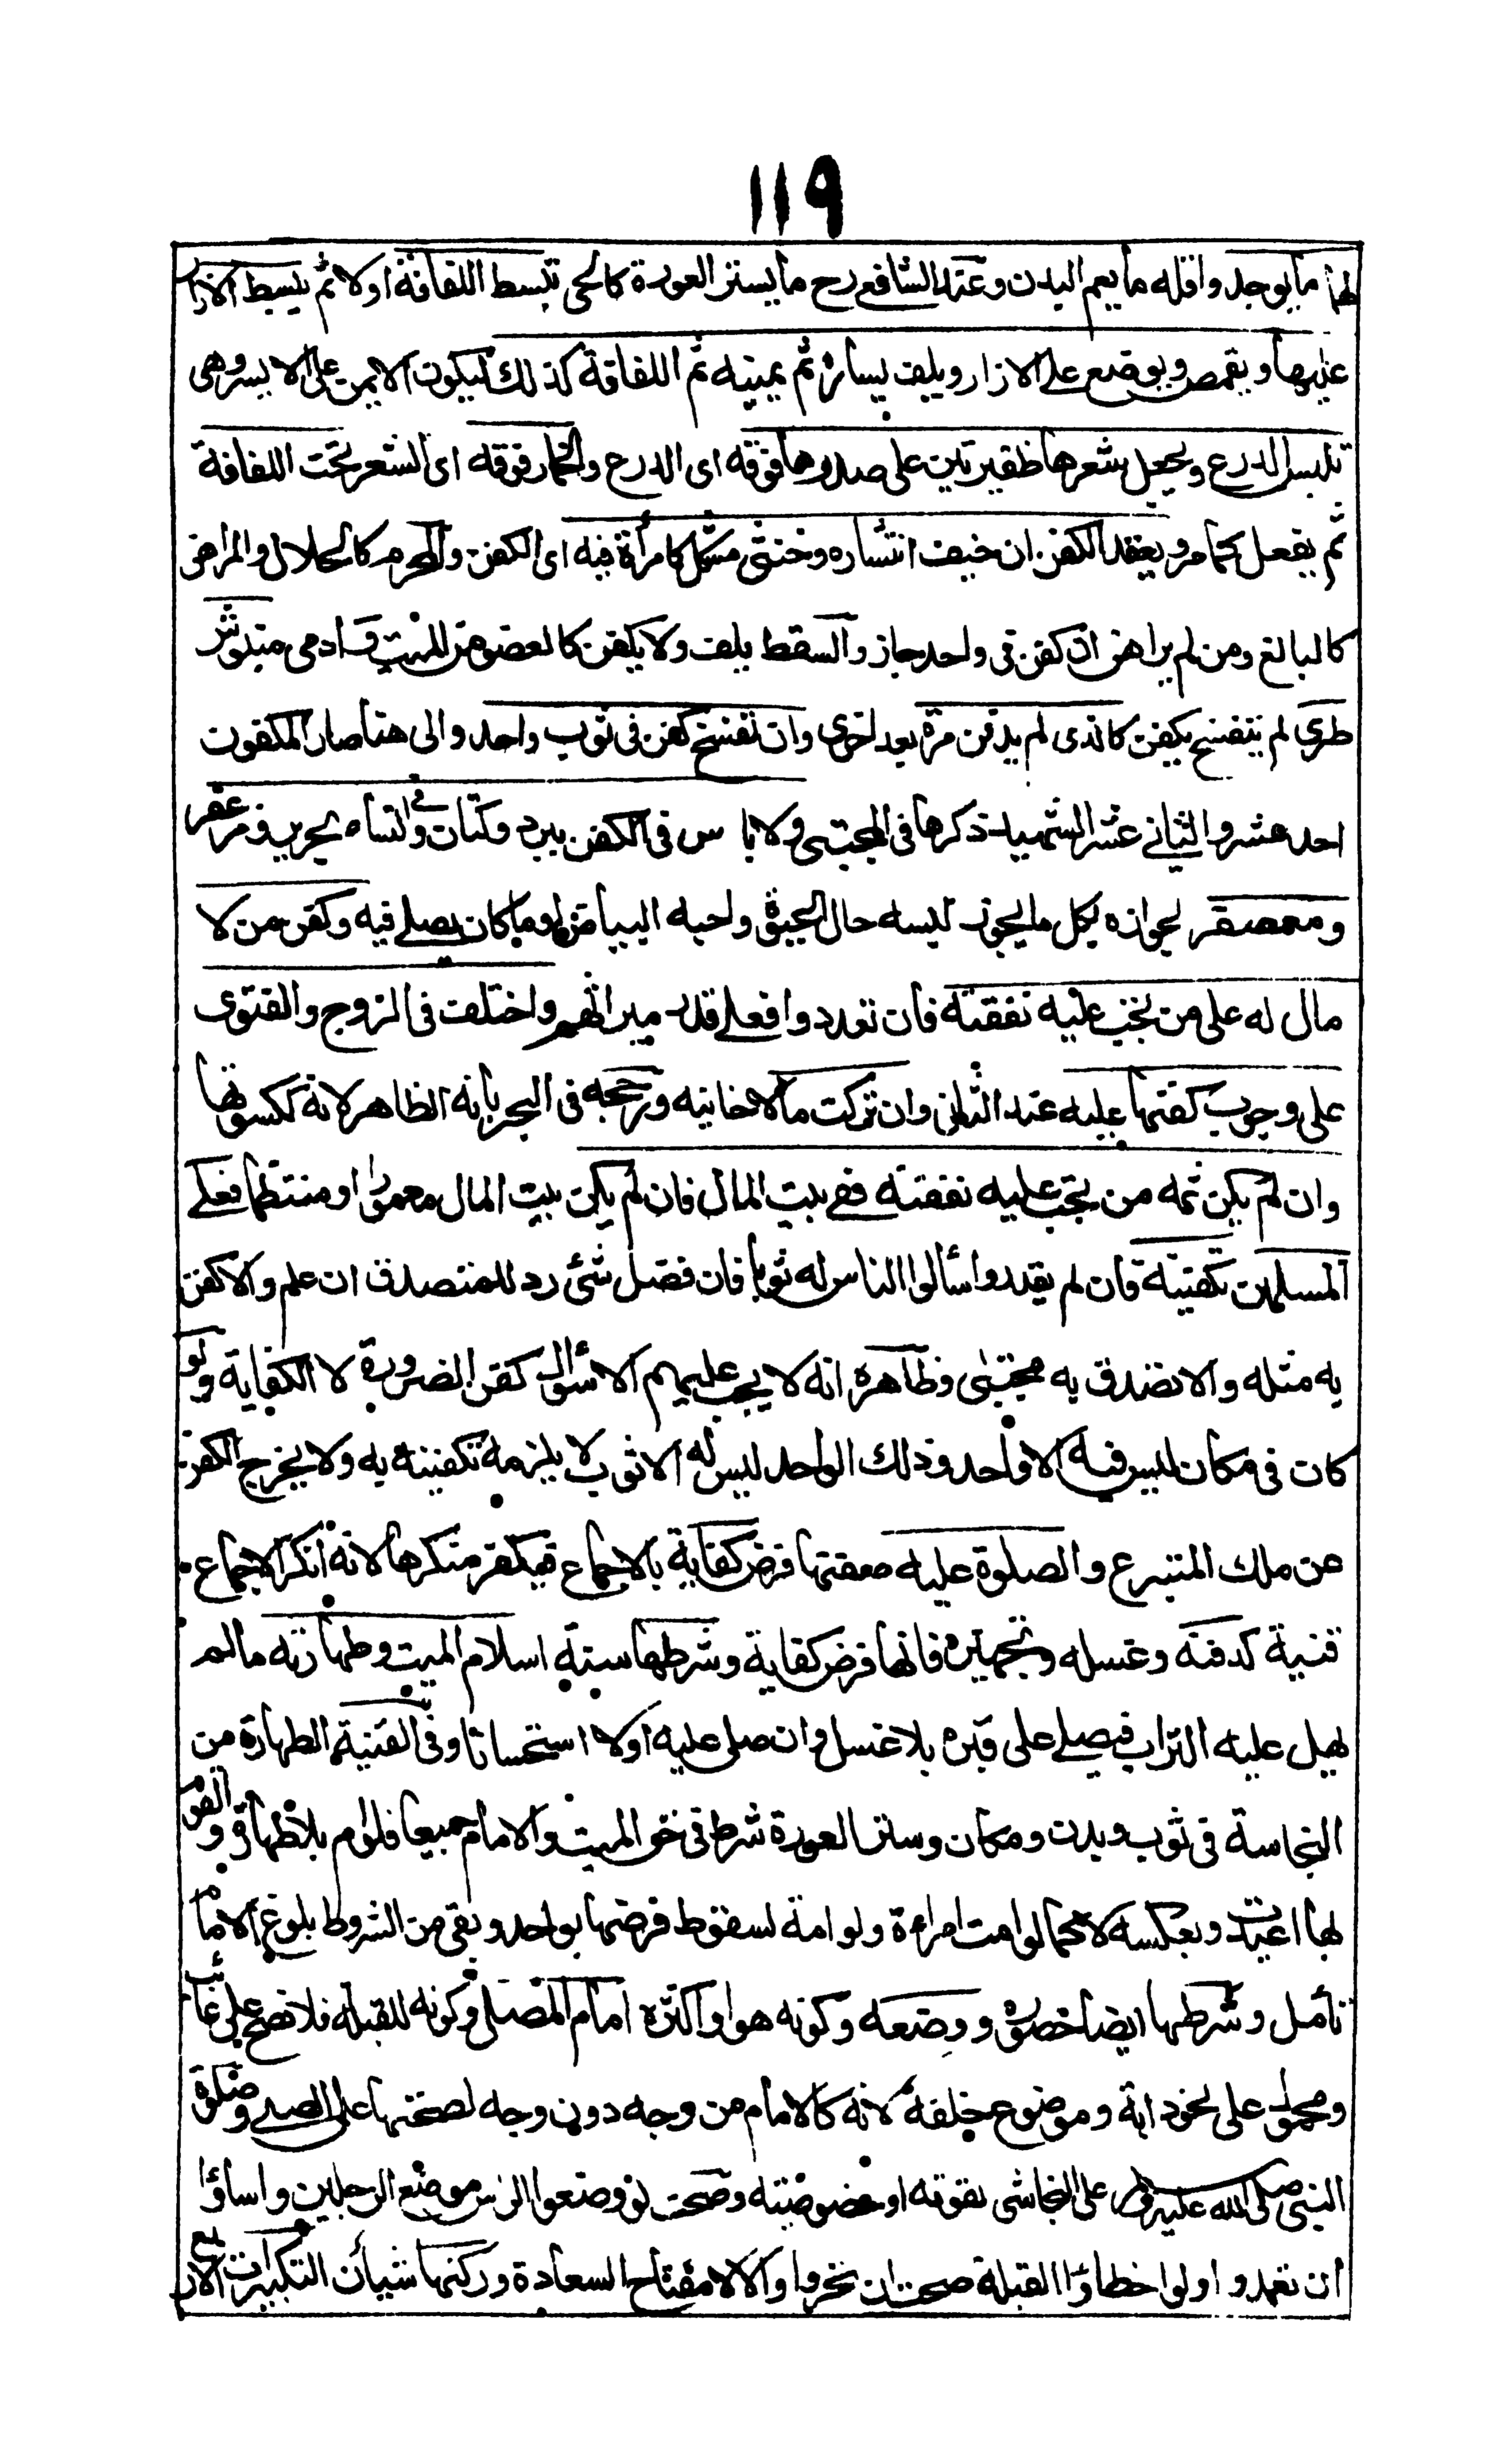 ١١٩
لهما ما يوجد واقله ما يعم البدن وعند الشافعي رح ما يستر العورة كالحي تبسط اللفافة اولا ثم يبسط الازار
عليها ويقمص ويوضع على الازار ويلف يساره ثم يمينه ثم اللفافة كذلك ليكون الايمن على الايسر وهي
تلبس الدرع ويجعل شعرها ظفيرتين على صدرها فوقه اى الدرع والخمار فوقه اى الشعر تحت اللفافة
ثم يفعل كما مر ويعقد الكفن ان خيف انتشاره وخنثى مشكل كامرأة فيه اى الكفن والمحرم كالحلال والمراهق
كالبالغ ومن لم يراهق ان كفن فى واحد جاز والسقط يلف ولا يكفن كالعضو من الميت وادمى منبوش
طرى لم يتفسخ يكفن كالذى لم يدفن مرة بعد اخرى وان تفسخ كفن فى ثوب واحد والى هنا صار المكفنون
احد عشر والثانى عشر الشهيد ذكرها فى المجتبى ولا باس فى الكفن ببرد وكتان وفى النساء بحرير ومزعفر
ومعصفر لجوازه بكل ما يجوز لبسه حال الحيوة واحبه البياض او ما كان يصلى فيه وكفن من لا
مال له على من تجب عليه نفقته فان تعددوا فعلى قدر ميراثهم واختلف فى الزوج والفتوى
على وجوب كفنها عليه عند الثانى وان تركت مالا خانيه ورجحه فى البحر بانه الظاهر لانه ككسوتها
وان لم يكن ثمه من تجب عليه نفقته ففى بيت المال فان لم يكن بيت المال معمورا او منتظما فعلى
المسلمين تكفينه فان لم يقدروا سألوا الناس له ثوبا فان فضل شئ رد للمتصدق ان علم والا كفن
به مثله والا تصدق به مجتبى وظاهره انه لا يجب عليهم الا سؤال كفن الضرورة لا الكفاية ولو
كان فى مكان ليس فيه الا واحد وذلك الواحد ليس له الا ثوب لا يلزمه تكفينه به ولا يخرج الكفن
عن ملك المتبرع والصلوة عليه صفتها فرض كفاية بالاجماع فيكفر منكرها لانه انكر الاجماع
قنية كدفنه وغسله وتجهيزه فانها فرض كفاية وشرطها ستة اسلام الميت وطهارته مالم
يهل عليه التراب فيصلى على قبره بلا غسل وان صلى عليه اولا استحسانا وفى القنية الطهارة من
النجاسة فى ثوب وبدن ومكان وستر العورة شرط فى حق الميت والامام جميعا فلو ام بلا طهارة والقوم
بها اعيدت وبعكسه لا كما لو امت امراءة ولو امة لسقوط فرضها بواحد وبقى من الشروط بلوغ الامام
تأمل وشرطها ايضا حضوره ووضعه وكونه هو او اكثره امام المصلى وكونه للقبلة فلا تصح على غائب
ومحمول على نحو دابة وموضوع خلفه لانه كالامام من وجه دون وجه لصحتها على الصبى وصلوة
النبى صلى الله عليه وسلم على النجاشى لغوية او خصوصية وصحت لو وضعوا الراس موضع الرجلين واساؤا
ان تعمدوا ولو اخطاؤا القبلة صحت ان تحروا والا لا مفتاح السعادة وركنها شيأن التكبيرات الاربع